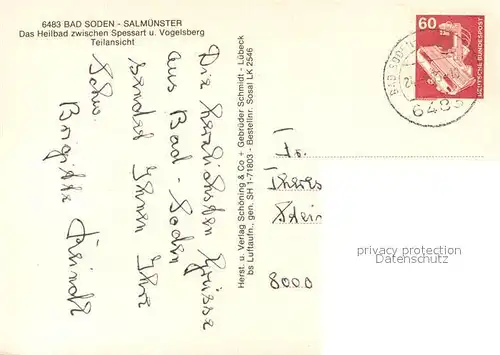 6483 BAD SODEN - SALMÜNSTER
Das Heilbad zwischen Spessart u. Vogelsberg
Teilansicht
Die herzlichsten Grüsse
aus Bad-Soden
sendet Ihnen Ihre
Schw.
Brigitte
Herst. u. Verlag Schöning & Co + Gebrüder Schmidt - Lübeck
bs Luftaufn., gen. SH 1-71803 - Bestellnr. Sosal LK 2546
60
DEUTSCHE BUNDESPOST
BAD SODEN
6483
Fr.
Theres
Stein
8000
privacy protection
Datenschutz